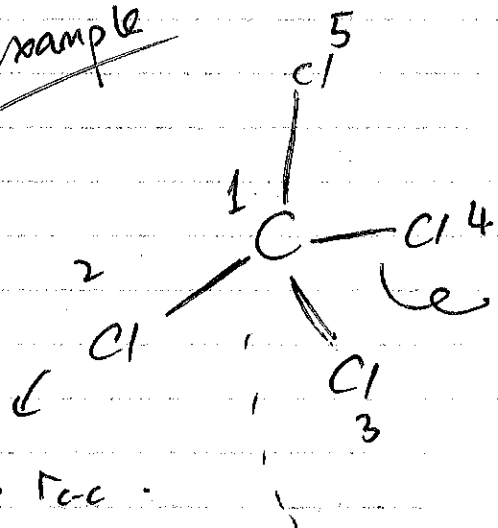 xample
5
Cl
1
C Cl 4
2
Cl
Cl
3
rc-c